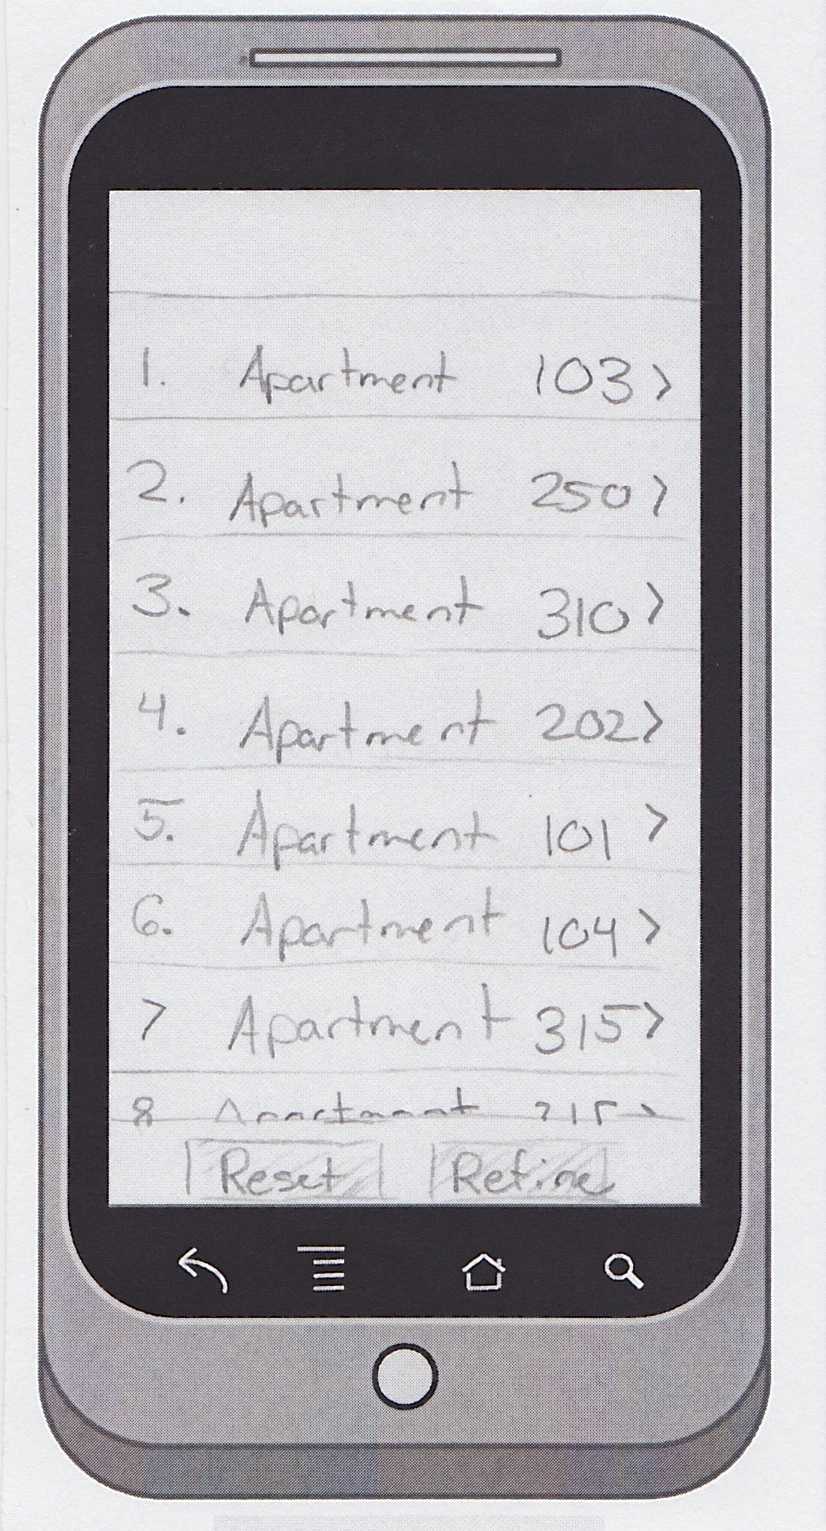 1. Apartment 103 >
2. Apartment 250 >
3. Apartment 310 >
4. Apartment 202 >
5. Apartment 101 >
6. Apartment 104 >
7 Apartment 315 >
8 Apartment
Reset Refine